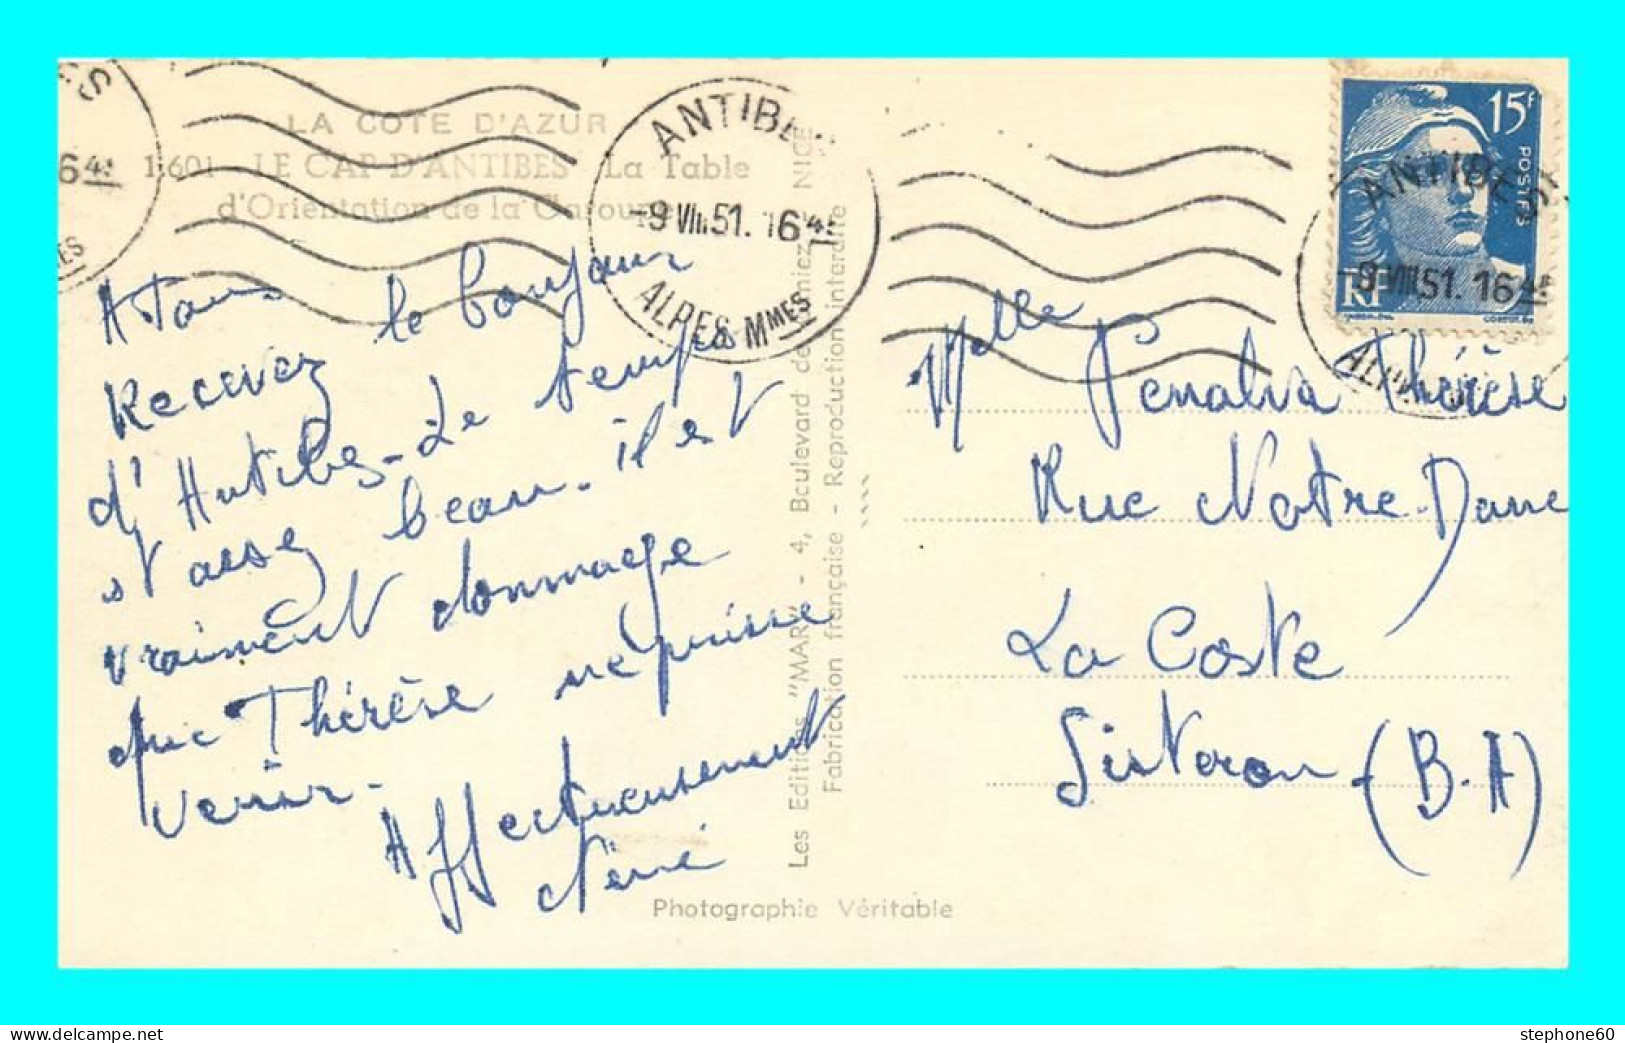 LA COTE D'AZUR
1.601 - LE CAP D'ANTIBES - La Table
d'Orientation de la Garoupe
ANTIBES
-9 VIII 51. 16 45
ALPES-MMES
ANTIBES
-9 VIII 51. 16 45
15F
POSTES
RF
A Tous
Recevez le bonjour
d'Antibes - Le temps
st assez beau. il est
vraiment dommage
que Thérèse ne puisse
venir -
Affectueusement
Néné
Les Editions "MAR" - 4, Boulevard de Cimiez - NICE
Fabrication française - Reproduction interdite
Photographie Véritable
Mlle Penalva Thérèse
Rue Notre Dame
La Coste
Sisteron - (B.A)
stephone60